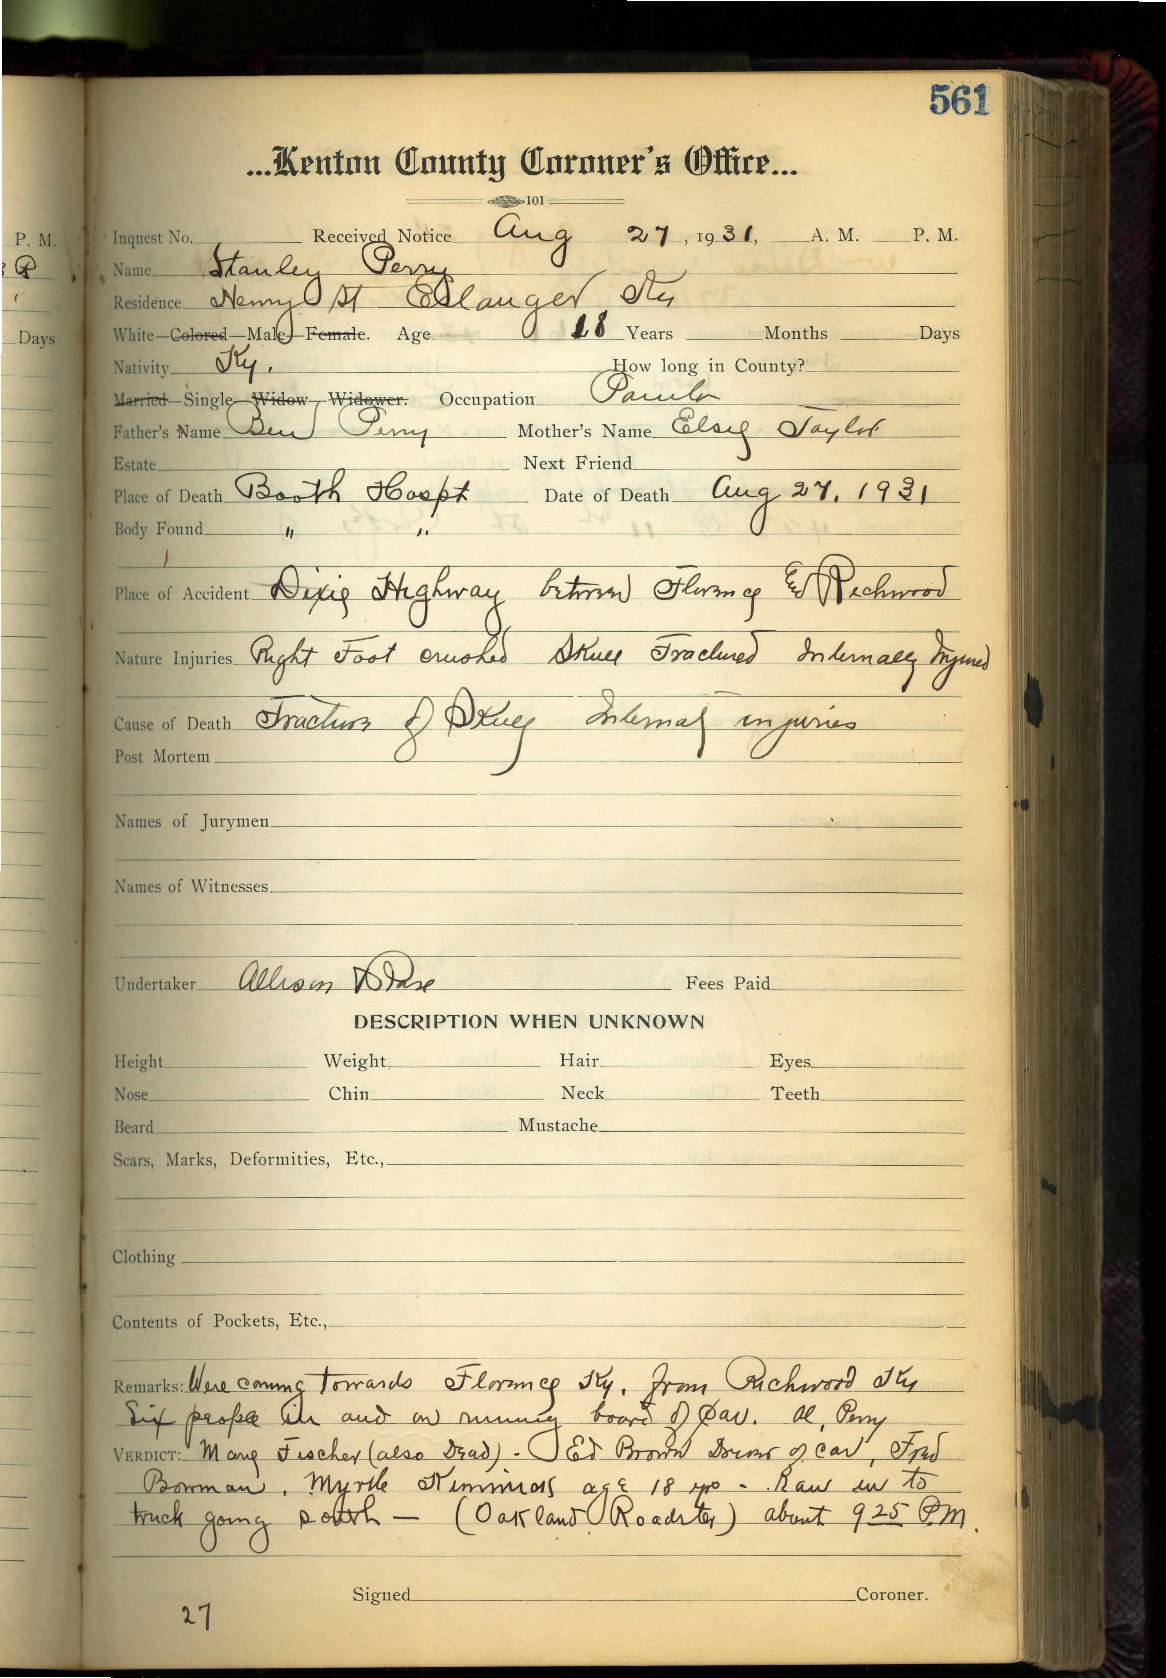 561
...Kenton County Coroner's Office...
101
P. M.
Inquest No. Received Notice Aug 27, 1931, A. M. P. M.
Name Stanley Perry
Residence Henry St Erlanger Ky
Days
White—Colored—Male—Female. Age 18 Years Months Days
Nativity Ky. How long in County?
Married—Single—Widow—Widower. Occupation
Father's Name Ben Perry Mother's Name Elsie Taylor
Estate Next Friend
Place of Death Booth Hospt Date of Death Aug 27, 1931
Body Found " "
Place of Accident Dixie Highway between Florence Richwood
Nature Injuries Right Foot crushed Skull Fractured Internally Injured
Cause of Death Fracture of Skull Internal injuries
Post Mortem
Names of Jurymen
Names of Witnesses
Undertaker Allison & Rose Fees Paid
DESCRIPTION WHEN UNKNOWN
Height Weight Hair Eyes
Nose Chin Neck Teeth
Beard Mustache
Scars, Marks, Deformities, Etc.,
Clothing
Contents of Pockets, Etc.,
Remarks: Were coming towards Florence Ky. from Richwood Ky
Six people in and on running board of car. Al, Perry
VERDICT: Mary Fischer (also Dead) - Ed Brown Driver of car, Fred
Bowman, Myrtle age 18 yrs - Ran in to
truck going south — (Oakland Roadster) about 9 25 P.M.
Signed Coroner.
27